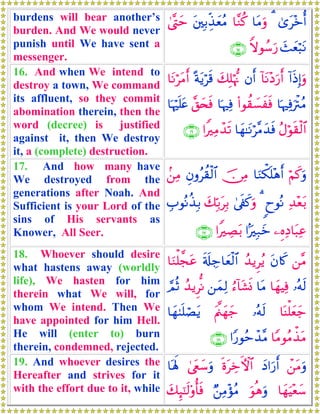 burdens will bear another's
burden. And We would never
punish until We have sent a
messenger.
أُخْرَىٰ ۗ وَمَا كُنَّا مُعَذِّبِينَ حَتَّىٰ
نَبْعَثَ رَسُولًا ﴿١٥﴾
16. And when We intend to
destroy a town, We command
its affluent, so they commit
abomination therein, then the
word (decree) is justified
against it, then We destroy
it, a (complete) destruction.
وَإِذَآ أَرَدْنَآ أَن نُّهْلِكَ قَرْيَةً أَمَرْنَا
مُتْرَفِيهَا فَفَسَقُوا۟ فِيهَا فَحَقَّ عَلَيْهَا
ٱلْقَوْلُ فَدَمَّرْنَٰهَا تَدْمِيرًا ﴿١٦﴾
17. And how many have
We destroyed from the
generations after Noah. And
Sufficient is your Lord of the
sins of His servants as
Knower, All Seer.
وَكَمْ أَهْلَكْنَا مِنَ ٱلْقُرُونِ مِنۢ
بَعْدِ نُوحٍ ۗ وَكَفَىٰ بِرَبِّكَ بِذُنُوبِ
عِبَادِهِۦ خَبِيرًۢا بَصِيرًا ﴿١٧﴾
18. Whoever should desire
what hastens away (worldly
life), We hasten for him
therein what We will, for
whom We intend. Then We
have appointed for him Hell.
He will (enter to) burn
therein, condemned, rejected.
مَّن كَانَ يُرِيدُ ٱلْعَاجِلَةَ عَجَّلْنَا
لَهُۥ فِيهَا مَا نَشَآءُ لِمَن نُّرِيدُ ثُمَّ
جَعَلْنَا لَهُۥ جَهَنَّمَ يَصْلَىٰهَا
مَذْمُومًا مَّدْحُورًا ﴿١٨﴾
19. And whoever desires the
Hereafter and strives for it
with the effort due to it, while
وَمَنْ أَرَادَ ٱلْءَاخِرَةَ وَسَعَىٰ لَهَا
سَعْيَهَا وَهُوَ مُؤْمِنٌ فَأُو۟لَٰٓئِكَ